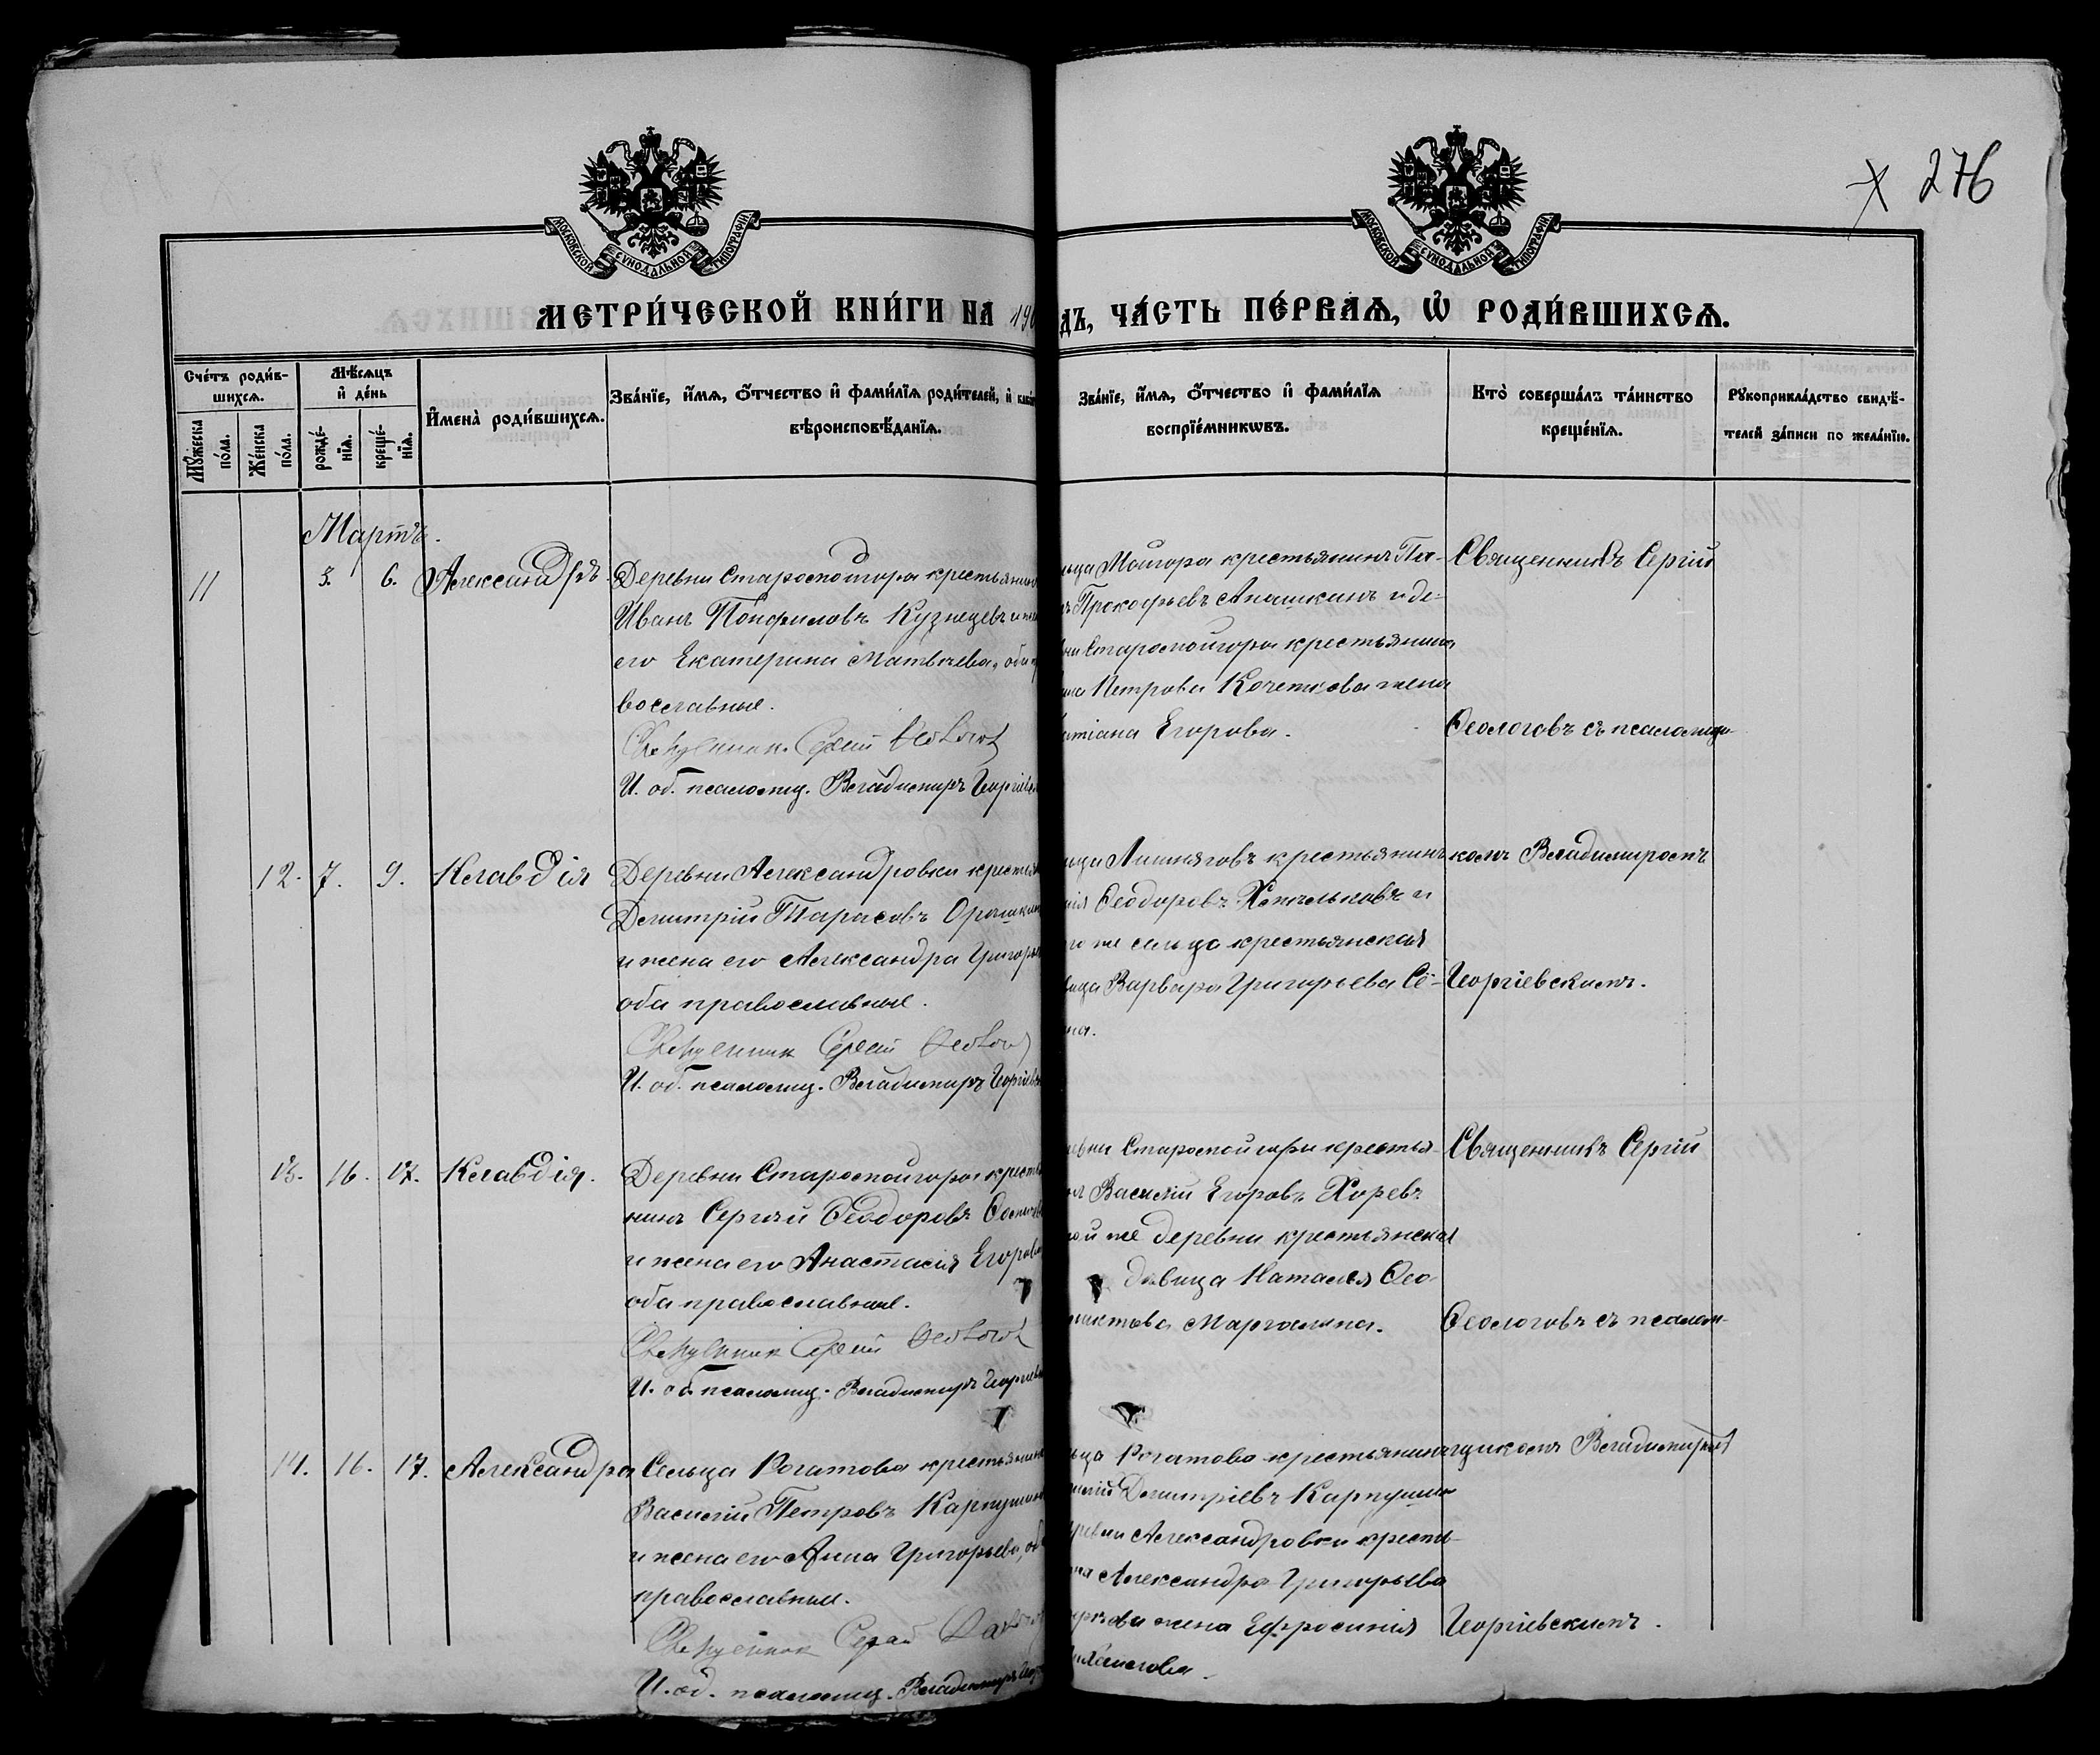 276
МОСКОВСКОЙ СУНОДАЛЬНОЙ ТИПОГРАФІИ
МОСКОВСКОЙ СУНОДАЛЬНОЙ ТИПОГРАФІИ
МЕТРИ́ЧЕСКОЙ КНИ́ГИ НА 190
дъ, ЧА́СТЬ ПЕ́РВАѦ, Ѡ҆ РОДИ́ВШИХСѦ.
Сче́тъ роди́в-
шихсѧ.
Мꙋ́жеска по́ла.
Же́нска по́ла.
Мѣ́сѧцъ
и҆ де́нь
рожде́-
нїѧ.
креще́-
нїѧ.
И҆мена̀ роди́вшихсѧ.
Зва́нїе, и҆́мѧ, ѻ҆́тчество и҆ фами́лїѧ роди́телей, и҆
вѣроисповѣ́данїѧ.
Зва́нїе, и҆́мѧ, ѻ҆́тчество и҆ фами́лїѧ
воспрїе́мникѡвъ.
Кто̀ соверша́лъ та́инство
креще́нїѧ.
Рꙋкоприкла́дство свидѣ́-
телей за́писи по жела́нїю.
Мартъ.
11 5. 6. Александръ
Деревни Староспойгора крестьянинъ
Иванъ Понфиловъ Кузнецевъ и
его Екатерина Матвѣева, оба
вославные.
Священник. Сергий Ѳеологов
И. об. псаломщ. Владимиръ Георгіев
Мойгора крестьянинъ Па-
Прокофьевъ Апашкинъ и де-
Староспойгора крестьянина
Петрова Кочеткова жена
тіана Егорова.
Священникъ Сергій
Ѳеологовъ съ псаломщи-
12. 7. 9. Клавдія
Деревни Александровки
Демитрій Тарасовъ
и жена его Александра Григорь
оба православные.
Священник Сергий Ѳеологов
И. об. псаломщ. Владимиръ Георгіев
крестьянинъ
Ѳеодоровъ и
же сельца крестьянская
Варвара Григорьева Се-
на.
комъ Владимиромъ
Георгіевскимъ.
13. 16. 17. Клавдія.
Деревни Староспойгора
нинъ Сергѣй Ѳеодоровъ
и жена его Анастасія Егорова
оба православные.
Священник Сергий Ѳеологов
И. об. псаломщ. Владимиръ Георгіев
Староспойгоры крестья-
Василій Егоровъ Хоревъ
той же деревни крестьянская
дѣвица Наталья Ѳео-
Маргалина.
Священникъ Сергій
Ѳеологовъ съ псалом-
14. 16. 17. Александра
Сельца Рогатова крестьянинъ
Василій Петровъ Карпушинъ
и жена его Анна Григорьева, об
православные.
Священник Сергий
И. об. псаломщ. Владимиръ
ца Рогатова крестьянинъ
Демитріевъ Карпушин
Александровки кресть-
Александра Григорьева
жена Ефросинія
щикомъ Владимиромъ
Георгіевскимъ.